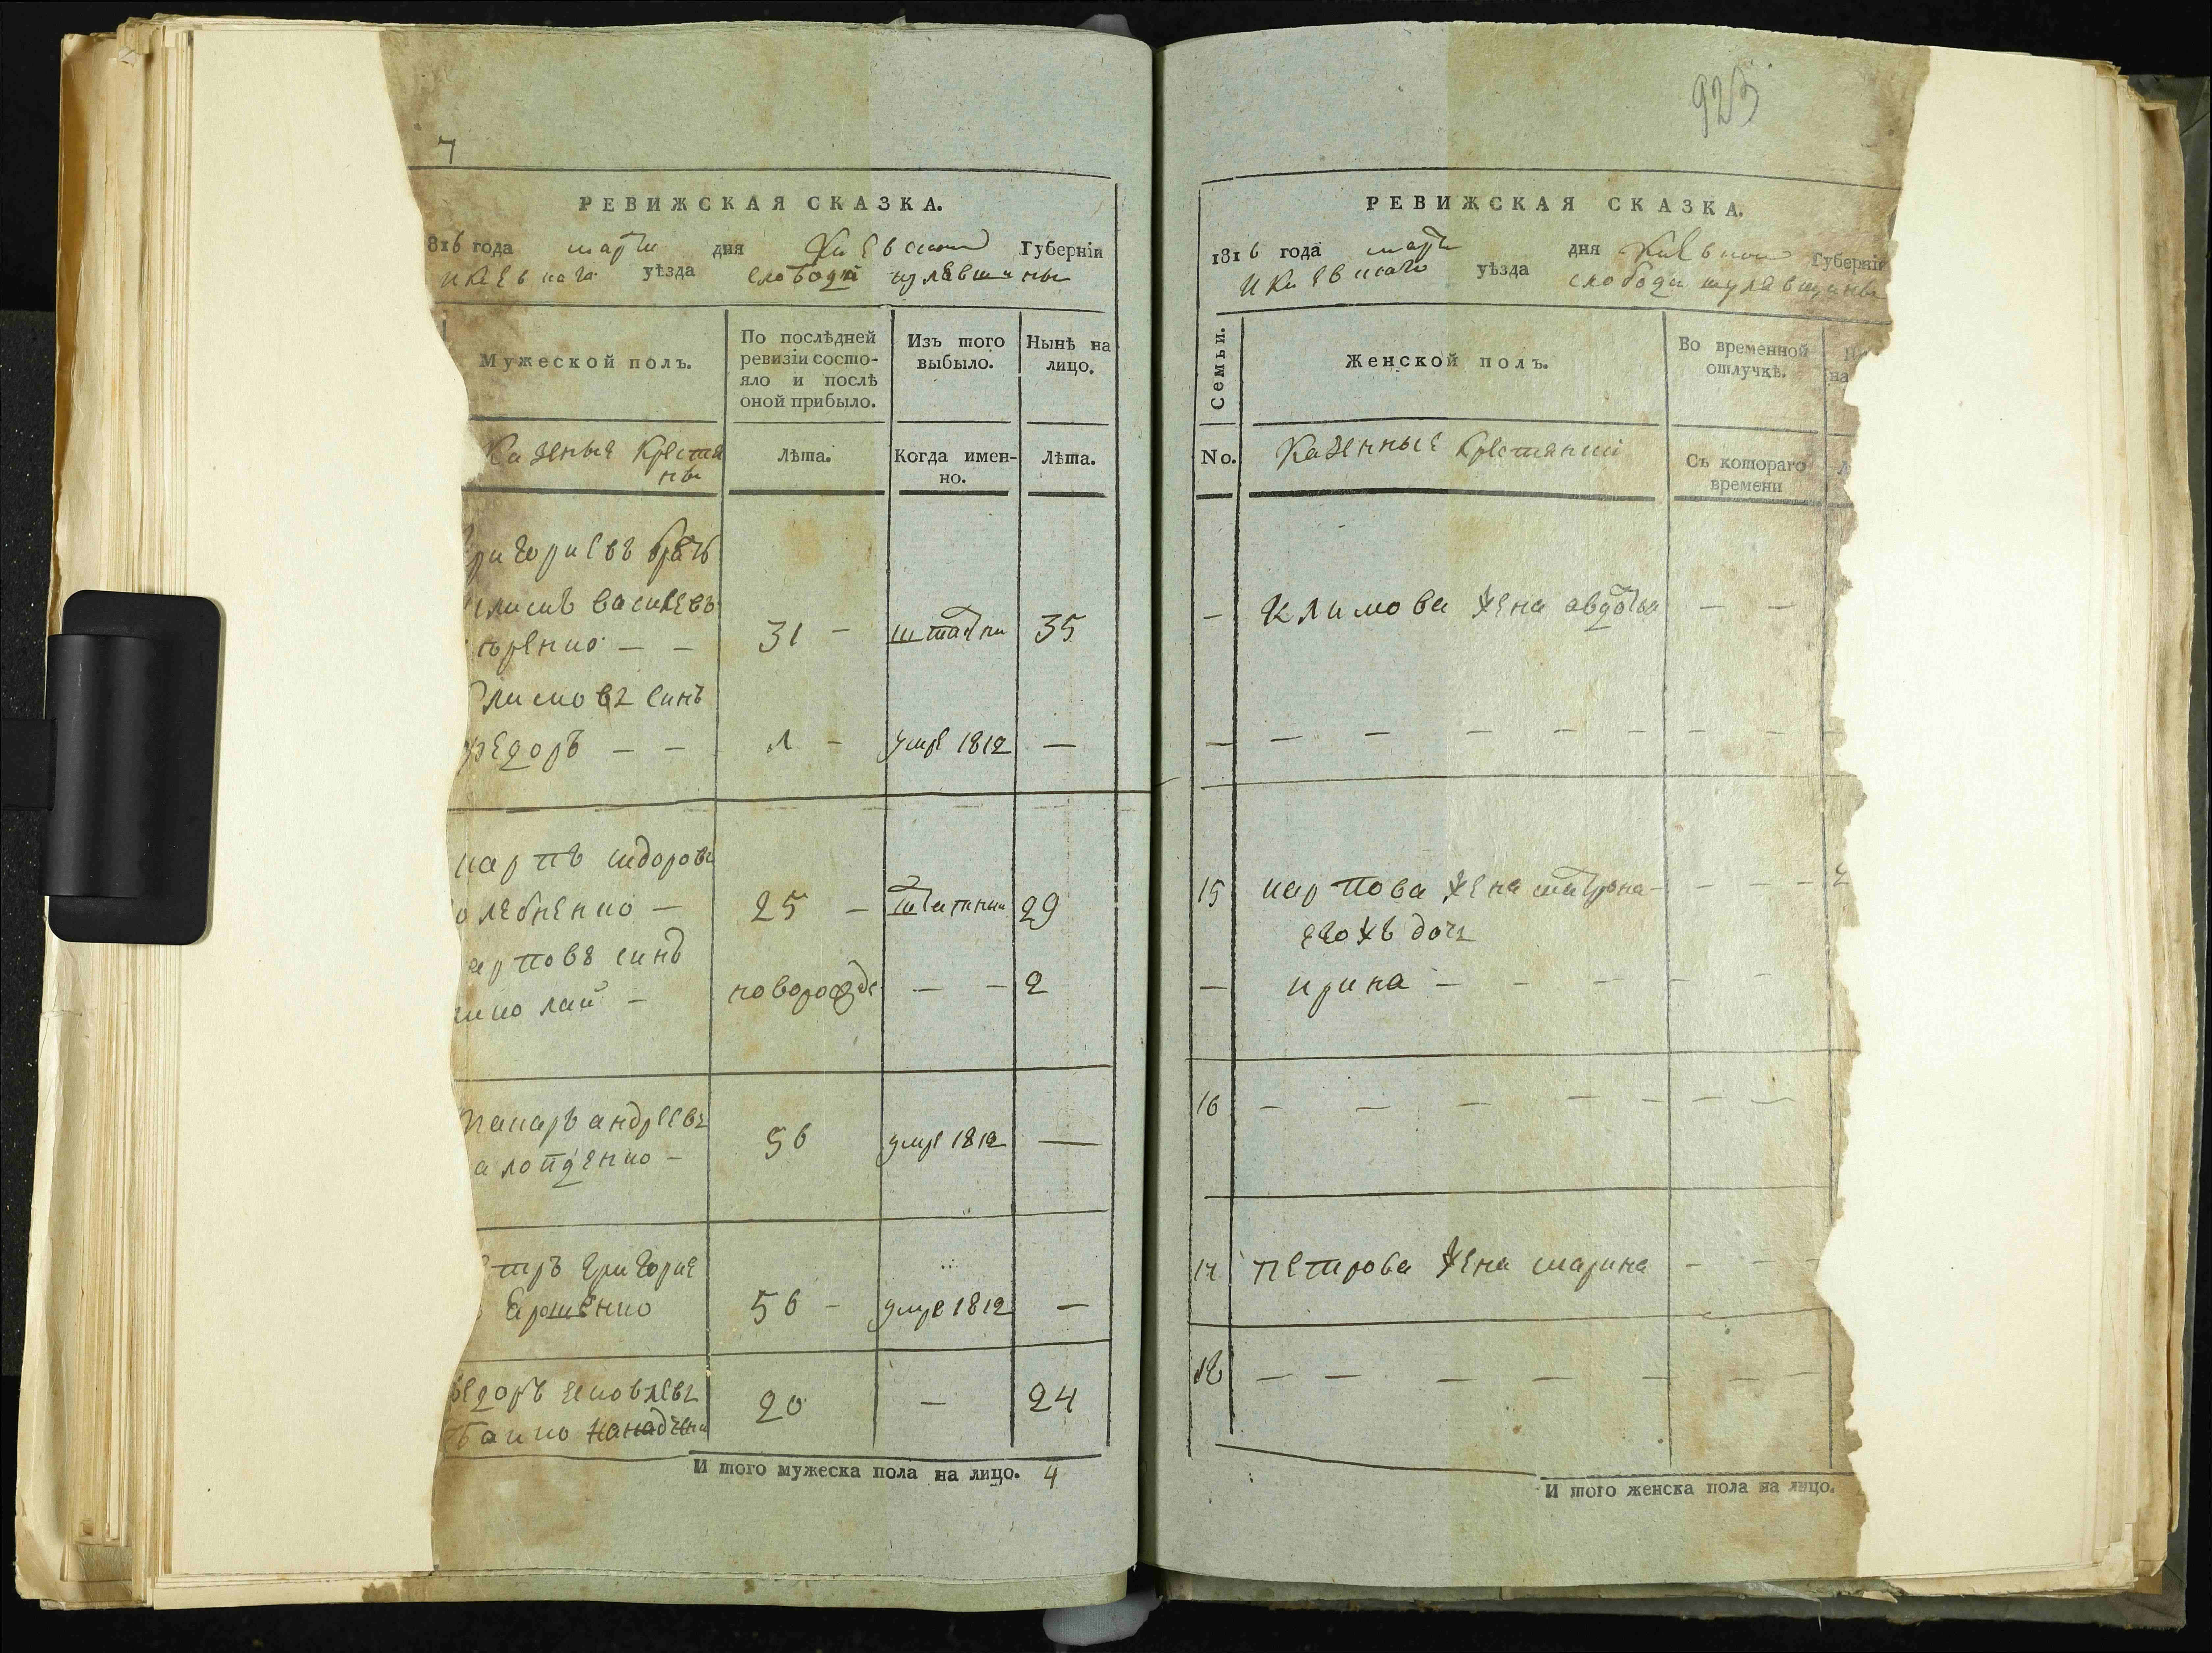 7
РЕВИЖСКАЯ СКАЗКА.
1816 года марта дня Киевской Губерніи
и Киевскаго уѣзда слободки шулявщины
Мужеской полъ.
По послѣдней
ревизіи состо-
яло и послѣ
оной прибыло.
Изъ того
выбыло.
Нынѣ на
лицо.
Казеные Крестя
ны
Лѣта.
Когда имен-
но.
Лѣта.
григориевъ братъ
климъ василевъ
31 - 35
климовъ синъ
федоръ - - 1 - умре 1812 -
карпъ сидоровъ
25 - 29
карповъ синъ
николай - новорожде - - 2
макаръ андреевъ
56 умре 1812 -
петръ григорие
56 - умре 1812 -
федоръ яковлевъ
20 - 24
И того мужеска пола на лицо. 4
925
РЕВИЖСКАЯ СКАЗКА.
1816 года марта дня Киевской Губерніи
и Киевскаго уѣзда слободи шулявщины
Семьи.
Женской полъ.
Во временной
отлучкѣ.
на
No.
Казенные Крестянки
Съ котораго
времени
- Климова жена авдотья - -
- - - - - - - - -
15 карпова жена матрона - - - -
его жъ дочь
- ирина - - - - -
16 - - - - - - -
17 петрова жена марина - - -
18 - - - - - - -
И того женска пола на лицо.